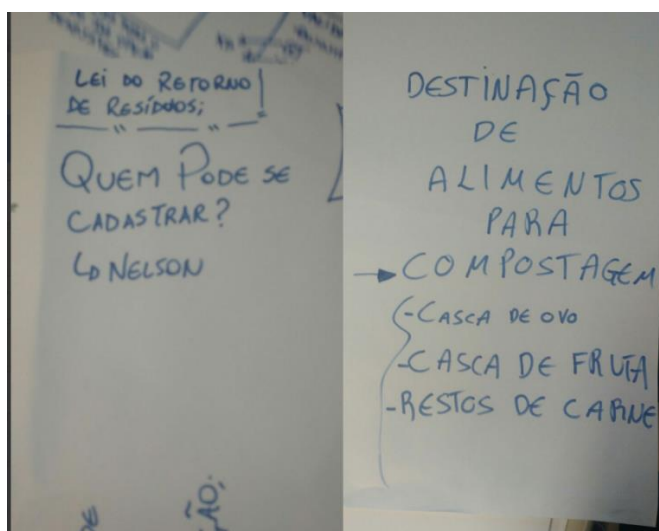 LEI DO RETORNO
DE RESÍDUOS;
QUEM PODE SE
CADASTRAR?
NELSON
DESTINAÇÃO
DE
ALIMENTOS
PARA
COMPOSTAGEM
- CASCA DE OVO
- CASCA DE FRUTA
- RESTOS DE CARNE